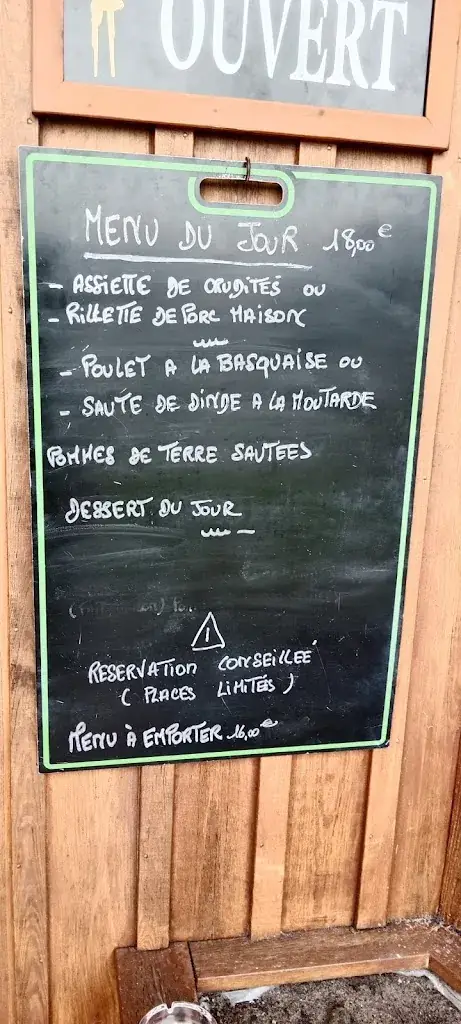 OUVERT
MENU DU JOUR 18,00€
- ASSIETTE DE CRUDITÉS OU
- RILLETTE DE PORC MAISON
- POULET A LA BASQUAISE OU
- SAUTE DE DINDE A LA MOUTARDE
POMMES DE TERRE SAUTEES
DESSERT DU JOUR
!
RESERVATION CONSEILLEÉ
( PLACES LIMITÉS )
MENU À EMPORTER 16,00€